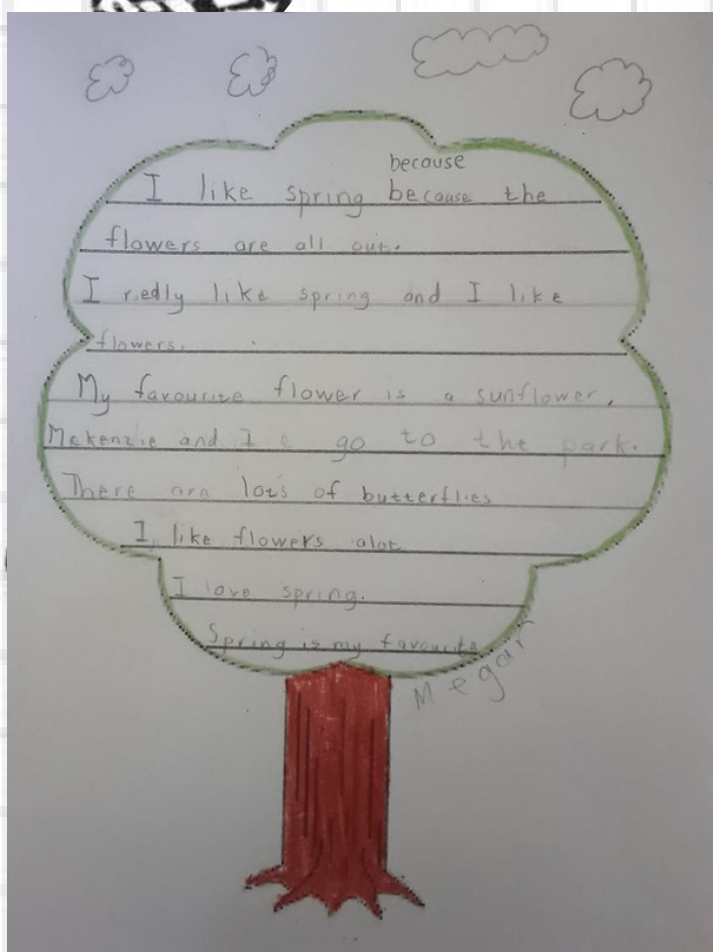 because
I like spring because the
flowers are all out.
I redly like spring and I like
flowers.
My favourite flower is a sunflower.
Mckenzie and I go to the park.
There are lots of butterflies
I like flowers alot
I love spring.
Spring is my favourite
Megan